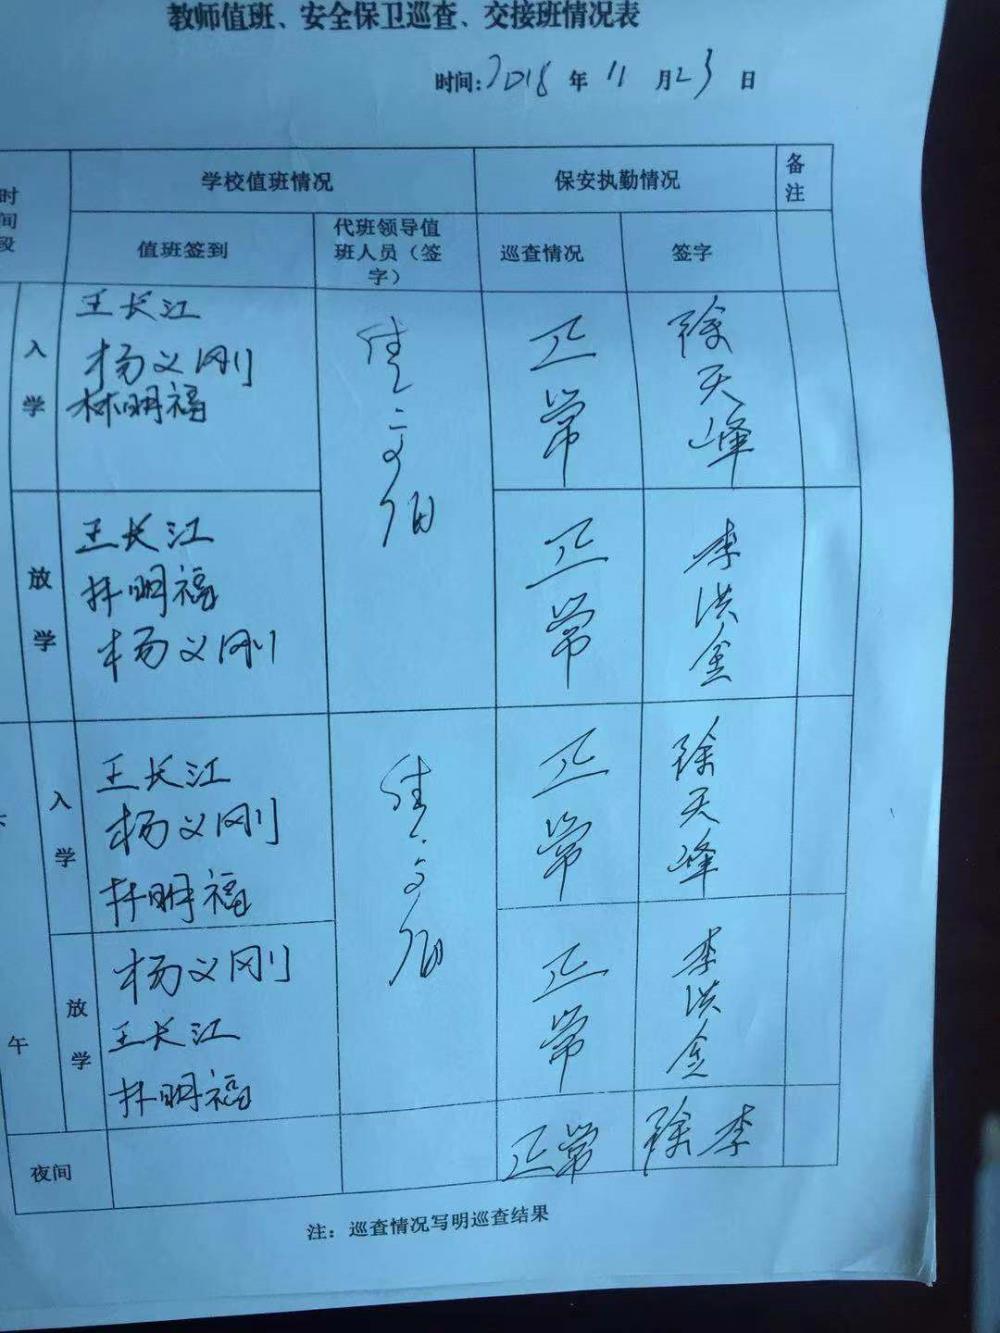 教师值班、安全保卫巡查、交接班情况表
时间:2018 年 11 月 23 日
时间段
学校值班情况
保安执勤情况
备注
值班签到
代班领导值
班人员（签
字）
巡查情况
签字
入学
王长江
杨义刚
林明福
正常
徐天峰
放学
王长江
林明福
杨义刚
正常
李洪金
午
入学
王长江
杨义刚
林明福
正常
徐天峰
放学
杨义刚
王长江
林明福
正常
李洪金
夜间
正常
徐 李
注：巡查情况写明巡查结果